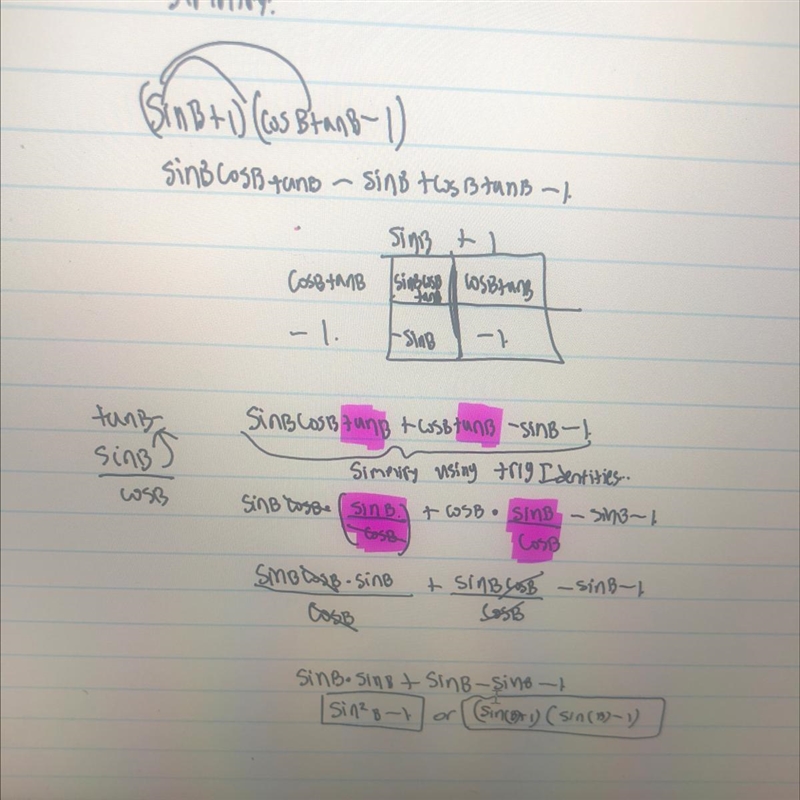 (SinB+1)(cosBtanB-1)
sinBcosBtanB - sinB + cosBtanB - 1.
sinB + 1
cosBtanB sinBcosB tanB cosBtanB
-1. -sinB -1
tanB
sinB
cosB
sinBcosBtanB + cosBtanB - sinB - 1
using trig Identities..
sinB cosB · (sinB/cosB) + cosB · sinB/cosB - sinB - 1
sinBcosB · sinB/cosB + sinBcosB/cosB - sinB - 1
sinB · sinB + sinB - sinB - 1
sin²B - 1 or (sin(B)+1)(sin(B)-1)